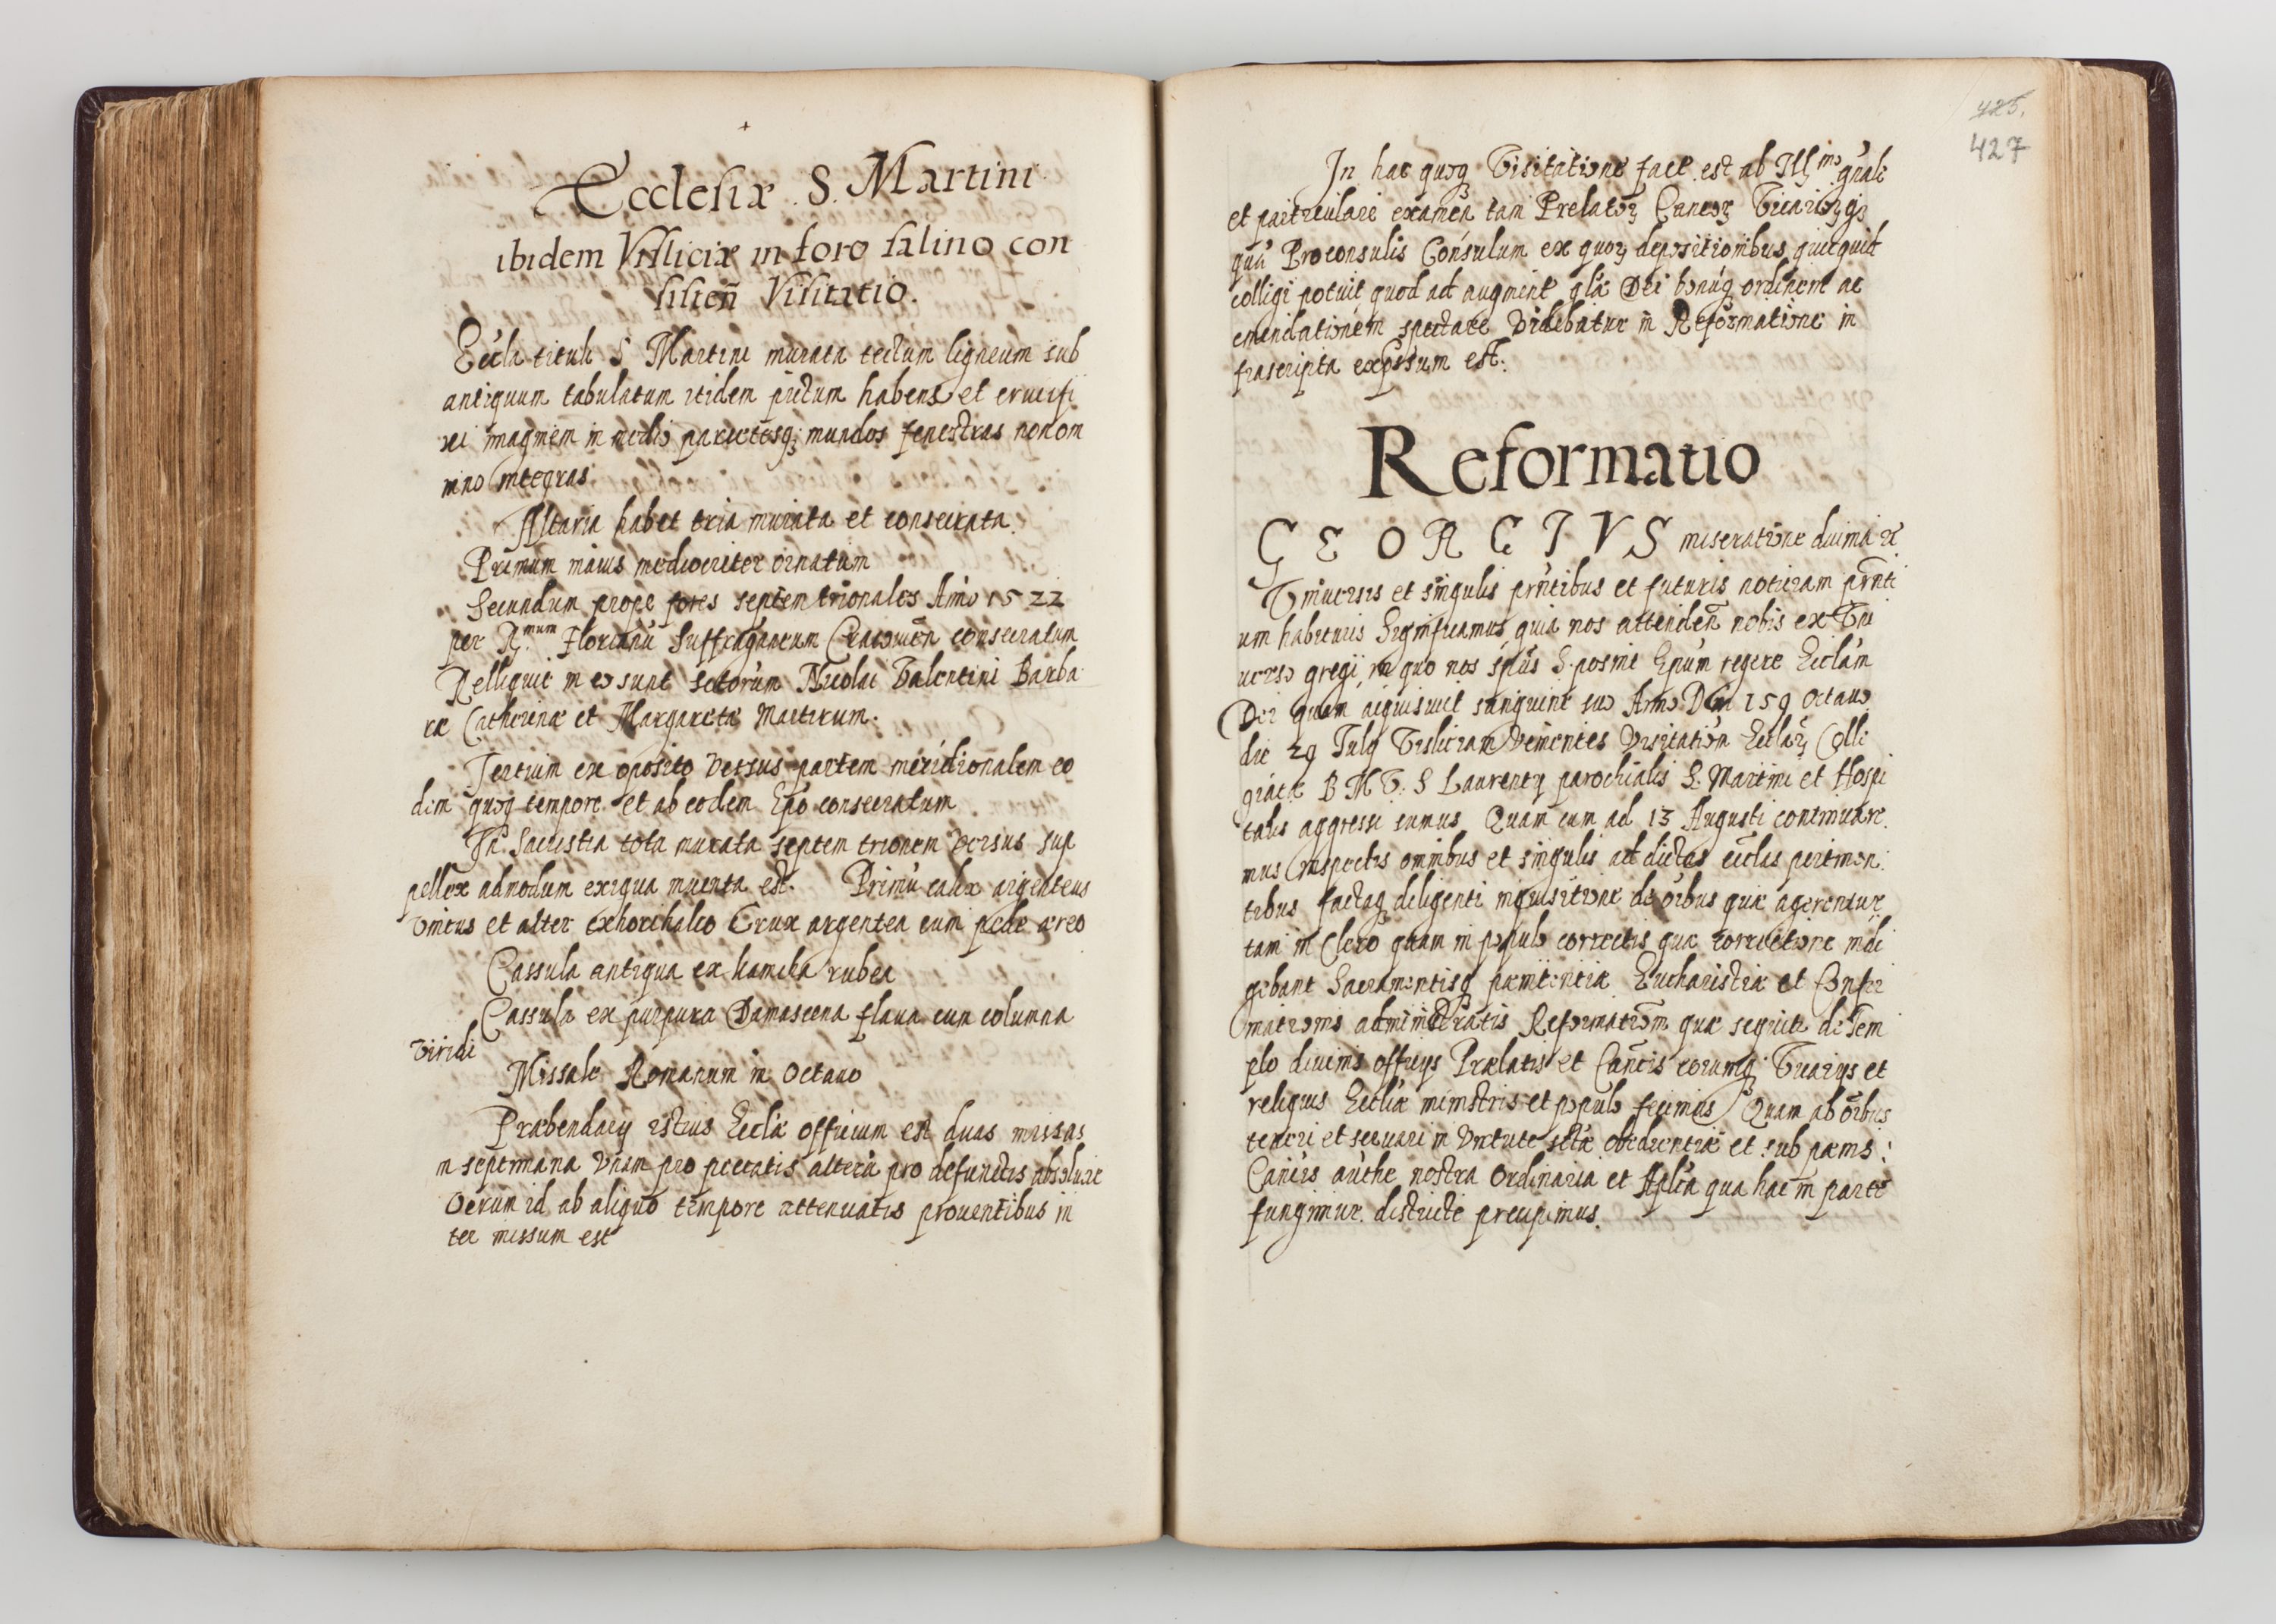 Ecclesiæ S. Martini
ibidem Visliciæ in foro salino con
sisteñ Visitatio.
Eccla tituli S Martini murata tectum ligneum sub
antiquum tabulatum itidem pictum habens et crucifi
xi imaginem in medio parietesq; mundos fenestras non om
nino integras
Altaria habet tria murata et consecrata.
Primum maius mediocriter ornatum
Secundum prope fores septemtrionales Anno 1522
per R.mum Florianū Suffraganeum Cracouień consecratum
Relliquie in eo sunt sctorum Nicolai Valentini Barba
ræ Catherinæ et Margaretæ martirum.
Tertium ex oposito versus partem meridionalem eo
dem quoq tempore et ab eodem Epo consecratum
In Sacristia tota murata septemtrionem versus sup
pellex admodum exigua inuenta est. Primū calix argenteus
vnicus et alter ex horihalco Crux argentea cum pede æreo
Cassula antiqua ex hamcha rubea
Cassula ex purpura Damascena flaua cum columna
viridi
Missale Romanum in octauo
Præbendarij istius Ecclæ officium est duas missas
in septimana vnam pro peccatis alterā pro defunctis absoluere
verum id ab aliquo tempore attenuatis prouentibus in
ter missum est
425.
427
In hac quoq Visitatione fact est ab Illmo gñale
et particulare examen tam Prelatoꝝ Canicoꝝ Vicarioꝝq
quā Proconsulis Consulum ex quoꝝ depositionibus quicquid
colligi potuit quod ad augment glæ Dei bonūq ordinem ac
emendationem spectare videbatur in Reformatione in
frascripta expssum est.
Reformatio
GEORGIVS miseratione diuina &
Vniuersis et singulis pñtibus et futuris notitiam pñti
um habituris Significamus quia nos attendeñ nobis ex Vni
uerso gregi, in quo nos spūs S. posuit Epum regere Ecclam
Dei quam aquisiuit sanguine suo Anno Dñi 159 octauo
die 29 Julij Visliciam venientes visitationē Ecclaꝝ Colle
giatæ B M V. S Laurentij parochialis S. Martini et Hospi
talis aggressi sumus Quam cum ad 13 Augusti continuare
mus inspectis omnibus et singulis ad dictas ecclas pertinen
tibus factaq diligenti inquisitione de oībus quæ agerentur
tam in Clero quam in populo correctis quæ correctione indi
gebant Sacramentisq pænitentiæ Eucharistiæ et Confir
mationis administratis Reformationē quæ sequit de Tem
plo diuinis officijs Prælatis et Canicis eorumq Vicarijs et
reliquis Ecclæ ministris et populo fecimus Quam ab oībus
teneri et seruari in virtute sctæ obedientiæ et sub pænis
Canicis authe nostra ordinaria et Aplica qua hac in parte
fungimur districte precipimus.